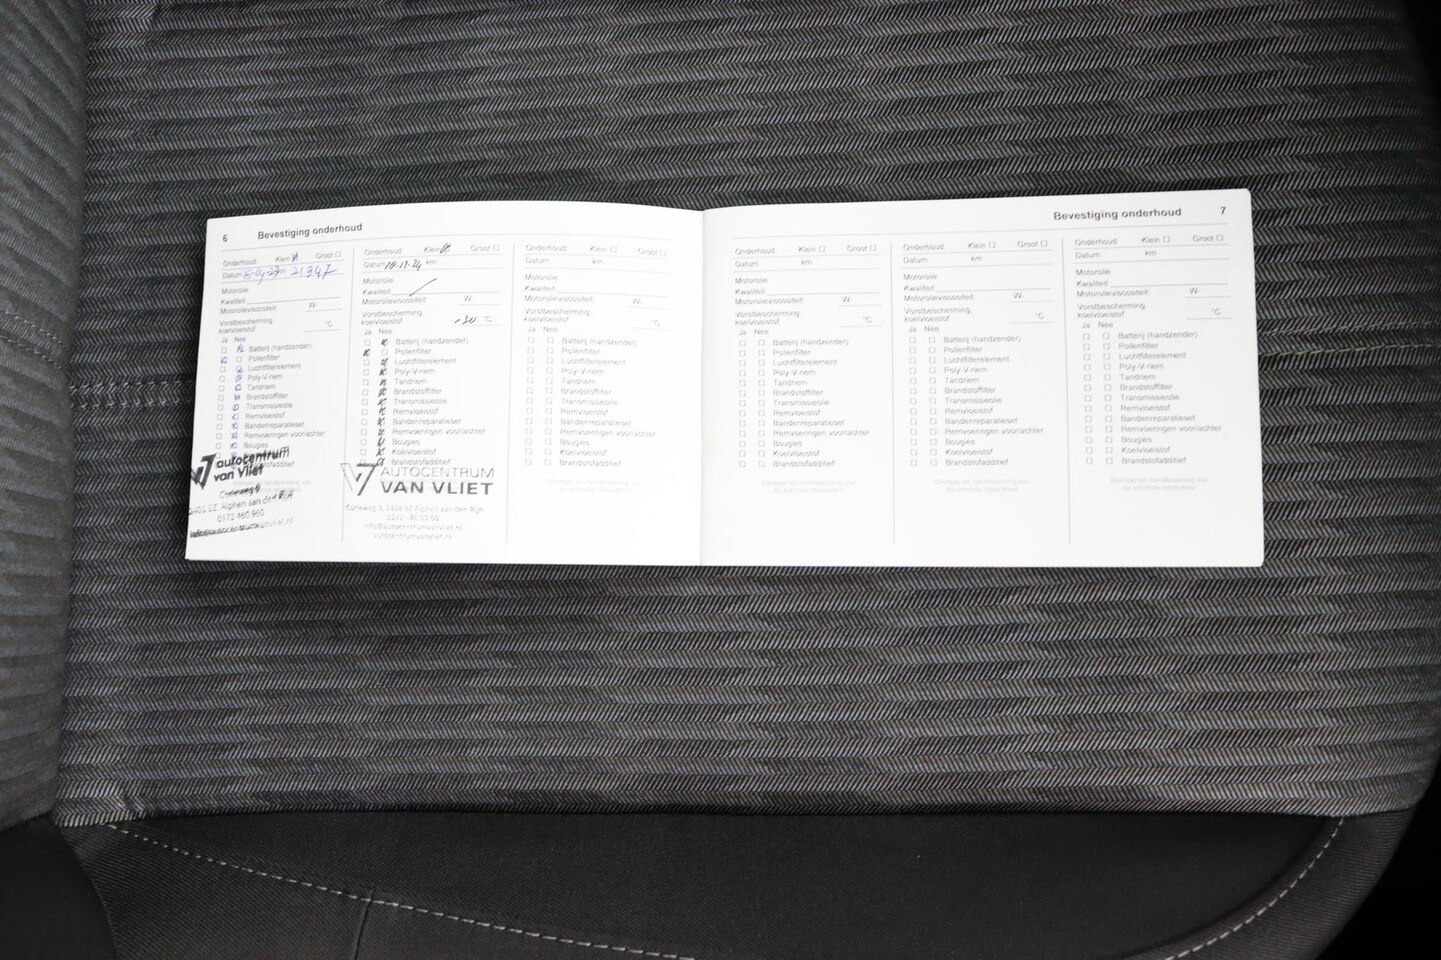 6 Bevestiging onderhoud
Onderhoud: Klein Groot
Datum km 21347
Motorolie
Kwaliteit
Motorolieviscositeit: W-
Vorstbescherming
koelvloeistof °C
Ja Nee
Batterij (handzender)
Pollenfilter
Luchtfilterelement
Poly-V-riem
Tandriem
Brandstoffilter
Transmissieolie
Remvloeistof
Bandenreparatieset
Remvoeringen voor/achter
Bougies
autocentrum
van Vliet
Coneweg 9
2404 EZ Alphen aan den Rijn
0172 460 960
info@autocentrumvanvliet.nl
Onderhoud: Klein Groot
Datum 18-12-24 km
Motorolie
Kwaliteit
Motorolieviscositeit: W-
Vorstbescherming
koelvloeistof -30 °C
Ja Nee
Batterij (handzender)
Pollenfilter
Luchtfilterelement
Poly-V-riem
Tandriem
Brandstoffilter
Transmissieolie
Remvloeistof
Bandenreparatieset
Remvoeringen voor/achter
Bougies
Koelvloeistof
Brandstofadditief
AUTOCENTRUM
VAN VLIET
2404 EZ Alphen aan den Rijn
info@autocentrumvanvliet.nl
autocentrumvanvliet.nl
Onderhoud: Klein Groot
Datum km
Motorolie
Kwaliteit
Motorolieviscositeit: W-
Vorstbescherming
koelvloeistof °C
Ja Nee
Batterij (handzender)
Pollenfilter
Luchtfilterelement
Poly-V-riem
Tandriem
Brandstoffilter
Transmissieolie
Remvloeistof
Bandenreparatieset
Remvoeringen voor/achter
Bougies
Koelvloeistof
Brandstofadditief
Bevestiging onderhoud 7
Onderhoud: Klein Groot
Datum km
Motorolie
Kwaliteit
Motorolieviscositeit: W-
Vorstbescherming
koelvloeistof °C
Ja Nee
Batterij (handzender)
Pollenfilter
Luchtfilterelement
Poly-V-riem
Tandriem
Brandstoffilter
Transmissieolie
Remvloeistof
Bandenreparatieset
Remvoeringen voor/achter
Bougies
Koelvloeistof
Brandstofadditief
Stempel en handtekening van
de erkende reparateur
Onderhoud: Klein Groot
Datum km
Motorolie
Kwaliteit
Motorolieviscositeit: W-
Vorstbescherming
koelvloeistof °C
Ja Nee
Batterij (handzender)
Pollenfilter
Luchtfilterelement
Poly-V-riem
Tandriem
Brandstoffilter
Transmissieolie
Remvloeistof
Bandenreparatieset
Remvoeringen voor/achter
Bougies
Koelvloeistof
Brandstofadditief
Stempel en handtekening van
de erkende reparateur
Onderhoud: Klein Groot
Datum km
Motorolie
Kwaliteit
Motorolieviscositeit: W-
Vorstbescherming
koelvloeistof °C
Ja Nee
Batterij (handzender)
Pollenfilter
Luchtfilterelement
Poly-V-riem
Tandriem
Brandstoffilter
Transmissieolie
Remvloeistof
Bandenreparatieset
Remvoeringen voor/achter
Bougies
Koelvloeistof
Brandstofadditief
Stempel en handtekening van
de erkende reparateur